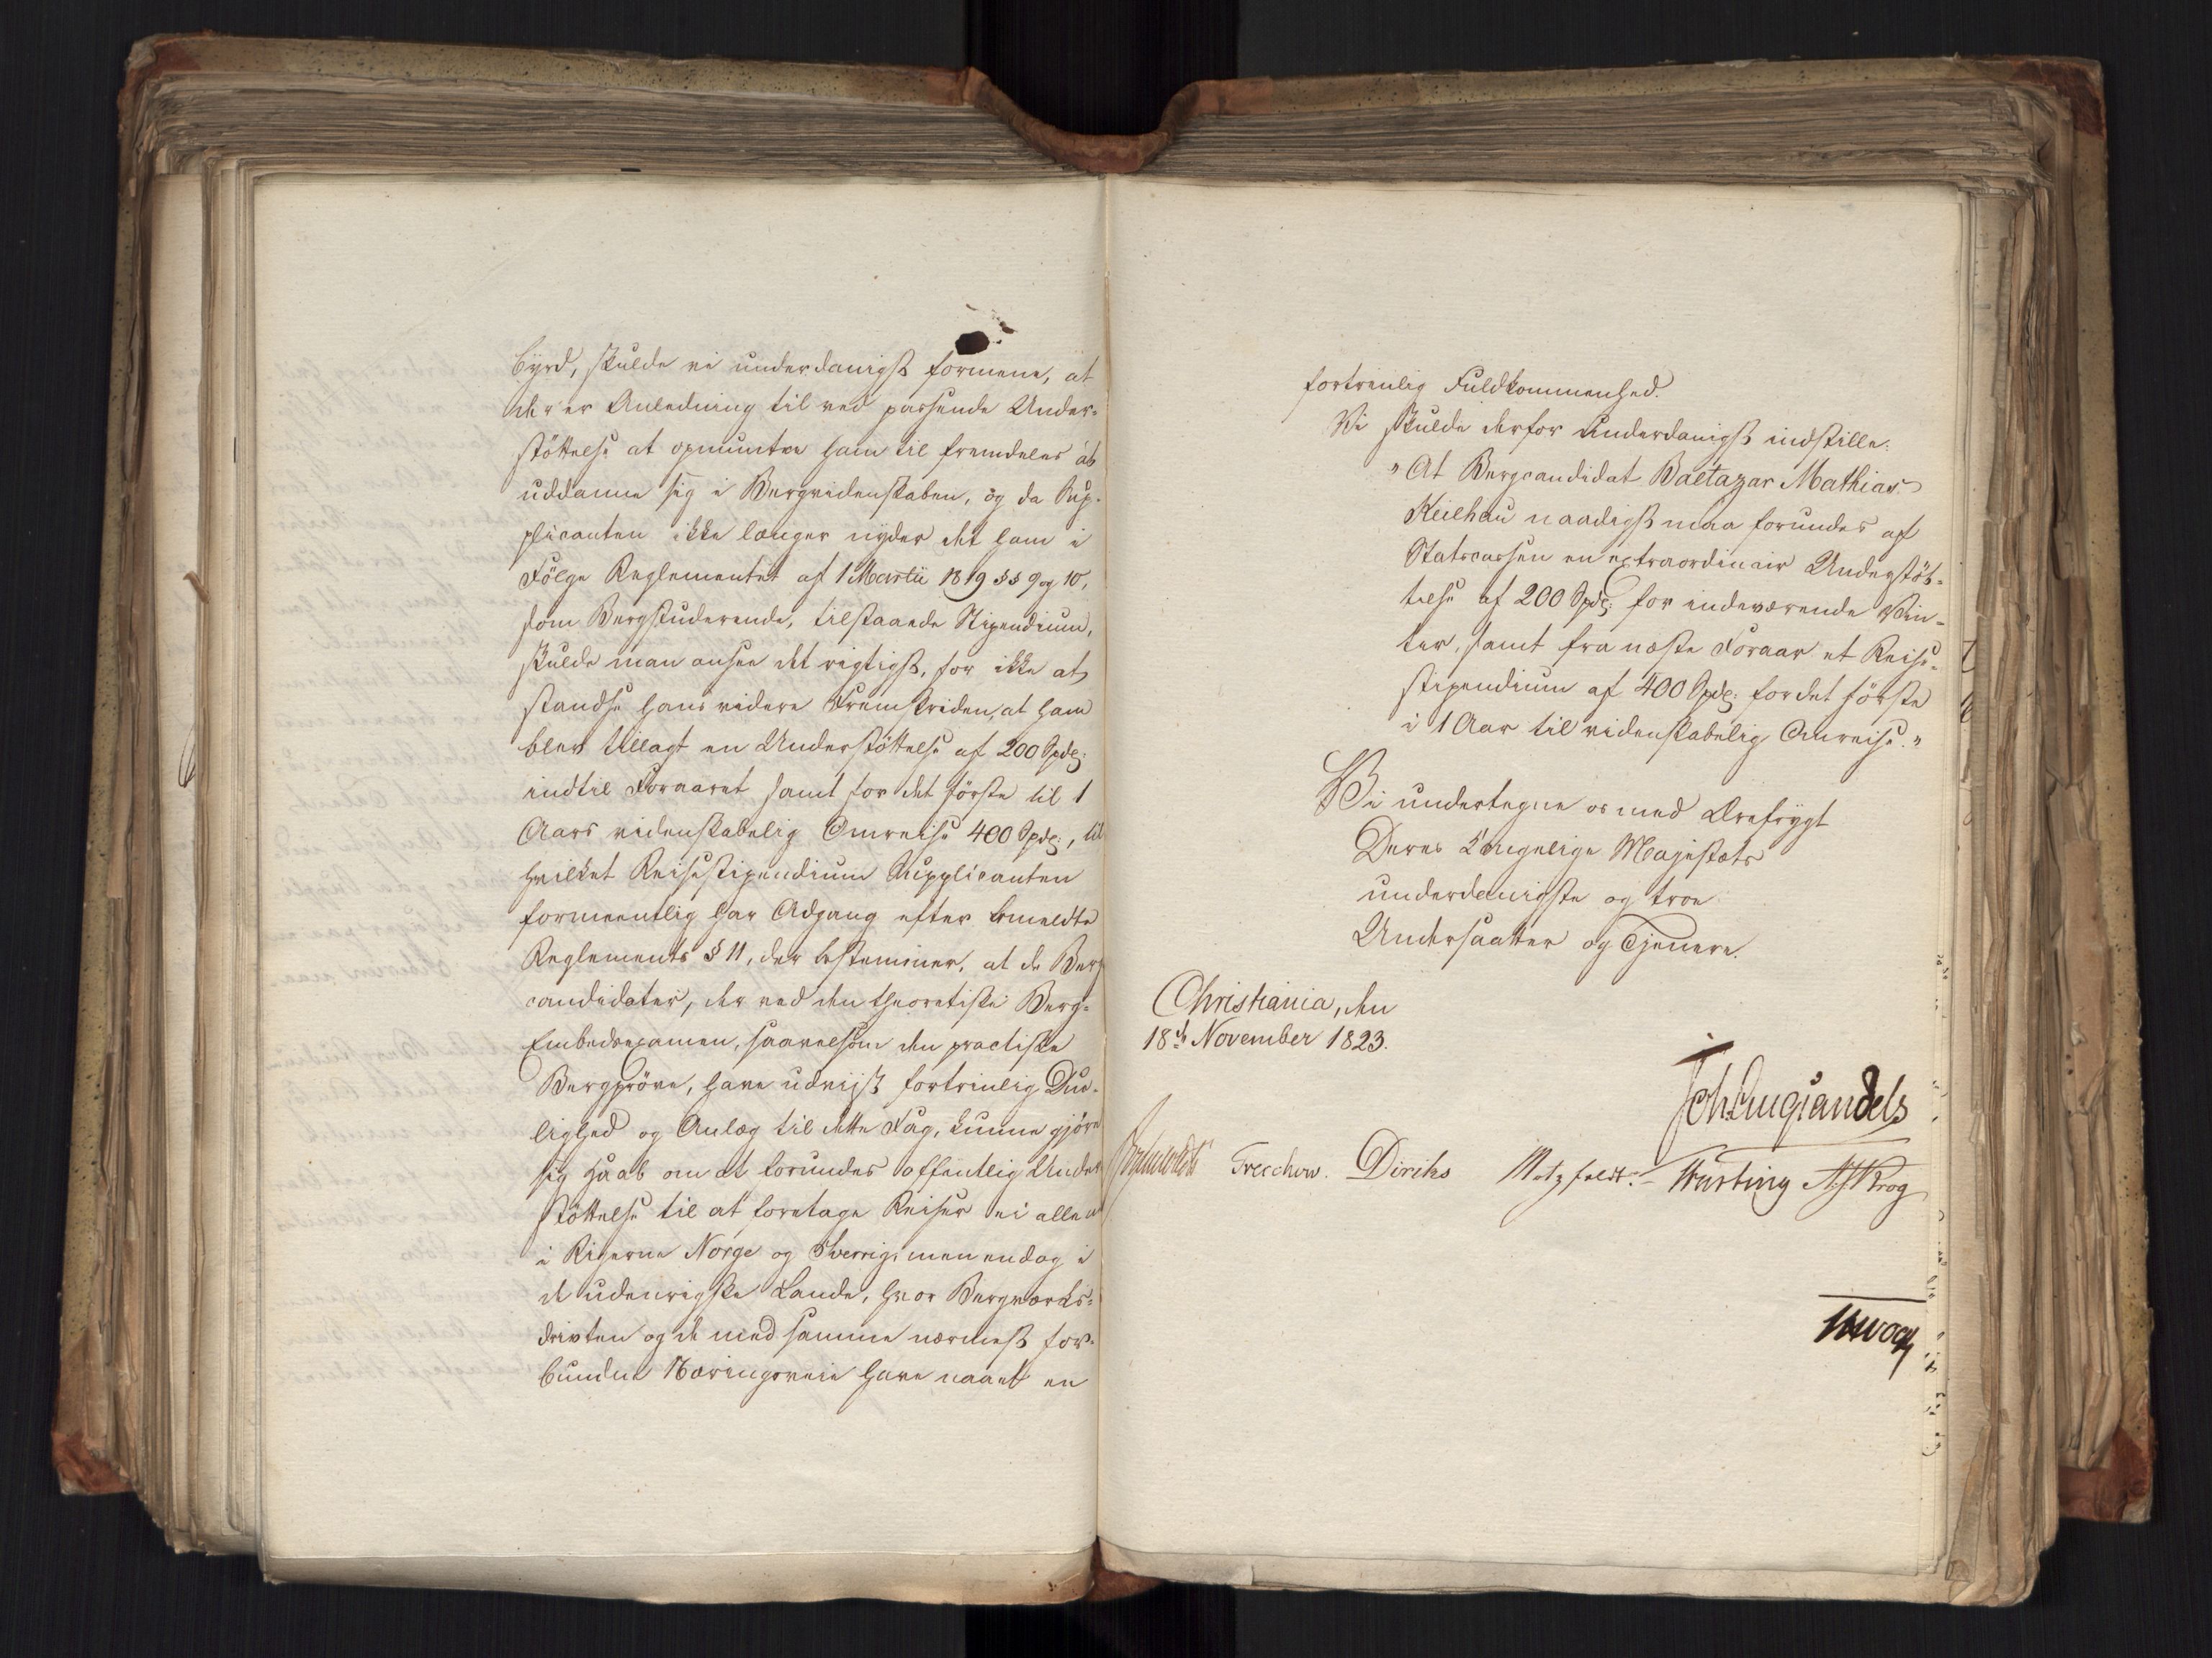 byrd, skulde vi underdanigst formene, at
der er Anledning til ved passende Under-
støttelse at opmuntre ham til fremdeles at
uddanne sig i Bergvidenskaben, og da Sup-
plicanten ikke længer nyder det ham i
Følge Reglementet af 1 Martii 1819 §§ 9 og 10,
som Bergstuderende, tilstaaede Stipendium,
skulde man ansee det rigtigst, for ikke at
standse hans videre Fremskriden, at ham
blev tillagt en Understøttelse af 200 Spdlr:
indtil Foraaret samt for det første til 1
Aars videnskabelig Omreise 400 Spdlr:, til
hvilket Reisestipendium Supplicanten
formeentlig har Adgang efter bemeldte
Reglements § 11, der bestemmer, at de Berg
candidater, der ved den theoretiske Berg-
Embedsexamen, saavelsom den practiske
Bergprøve, have udviist fortrinlig Due-
lighed og Anlæg til dette Fag, kunne gjøre
sig Haab om at forundes offentlig Under
støttelse til at foretage Reiser ei allene
i Rigerne Norge og Sverrig, men endog i
de udenrigske Lande, hvor Bergværks-
driften og de med samme nærmest for-
bundne Næringsveie have naaet en
fortrinlig Fuldkommenhed.
Vi skulde derfor underdanigst indstille:
"At Bergcandidat Baltazar Mathias
Keilhau naadigst maa forundes af
Statscassen en extraordinair Understøt-
telse af 200 Spdlr: for indeværende Vin-
ter, samt fra næste Foraar et Reise-
stipendium af 400 Spdlr: for det første
i 1 Aar til videnskabelig Omreise."
Vi undertegne os med Ærefrygt
Deres Kongelige Majestæts
underdanigste og troe
Undersaatter og Tjenere.
Christiania, den
18de November 1823.
Joh: Aug: Sandels
Sommerfeldt Treschow. Diriks Motzfeldt. Fasting A. Krog